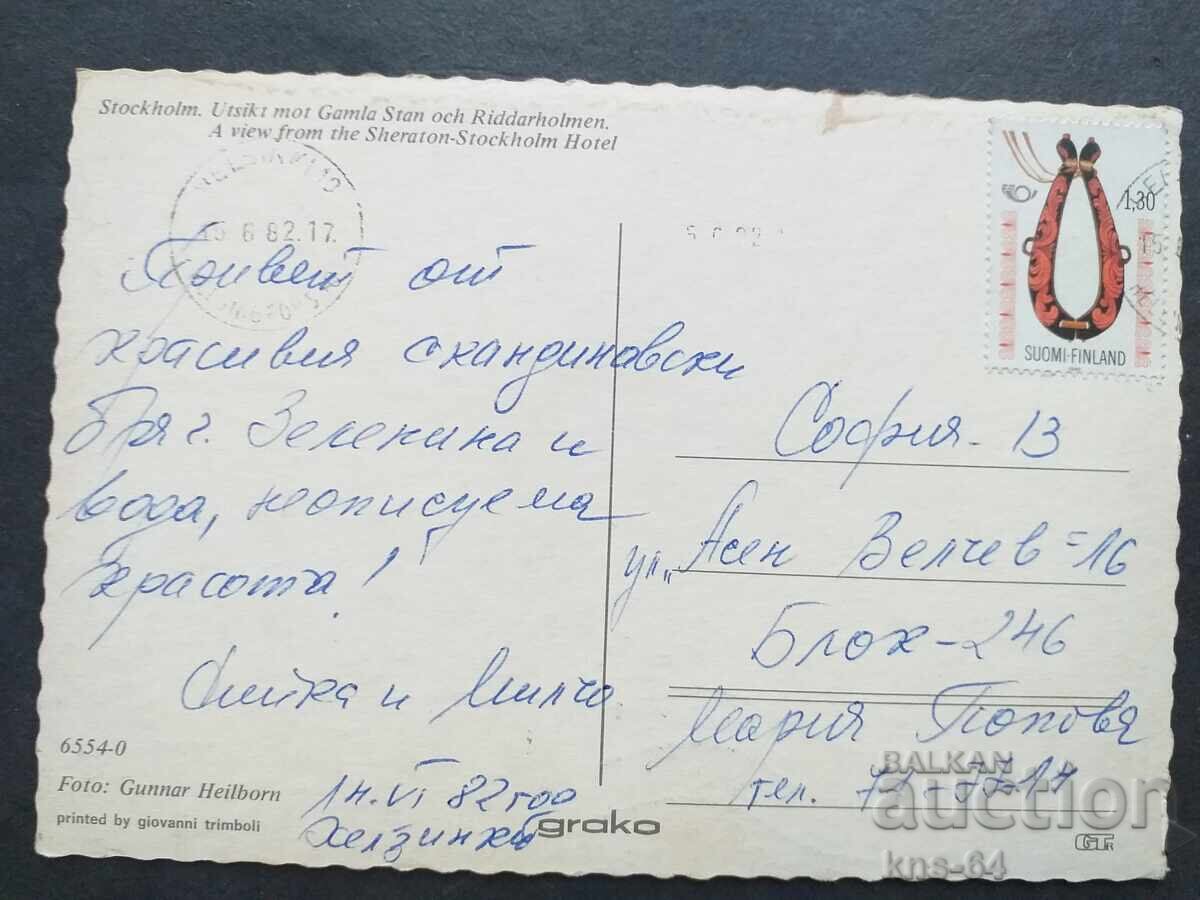 Stockholm. Utsikt mot Gamla Stan och Riddarholmen.
A view from the Sheraton-Stockholm Hotel
HELSINKI 10
15. 6 82. 17
Привет от
красивия скандинавски
бряг. Зеленина и
вода, неописуема
красота!
Митка и Милчо
14. VI 82 год
Хелзинки
6554-0
Foto: Gunnar Heilborn
printed by giovanni trimboli
grako
1,30
SUOMI-FINLAND
София - 13
ул. „Асен Велчев" - 16
Блок - 246
Мария Попова
тел. 71-77-17
GTR
BALKAN
auction
kns-64